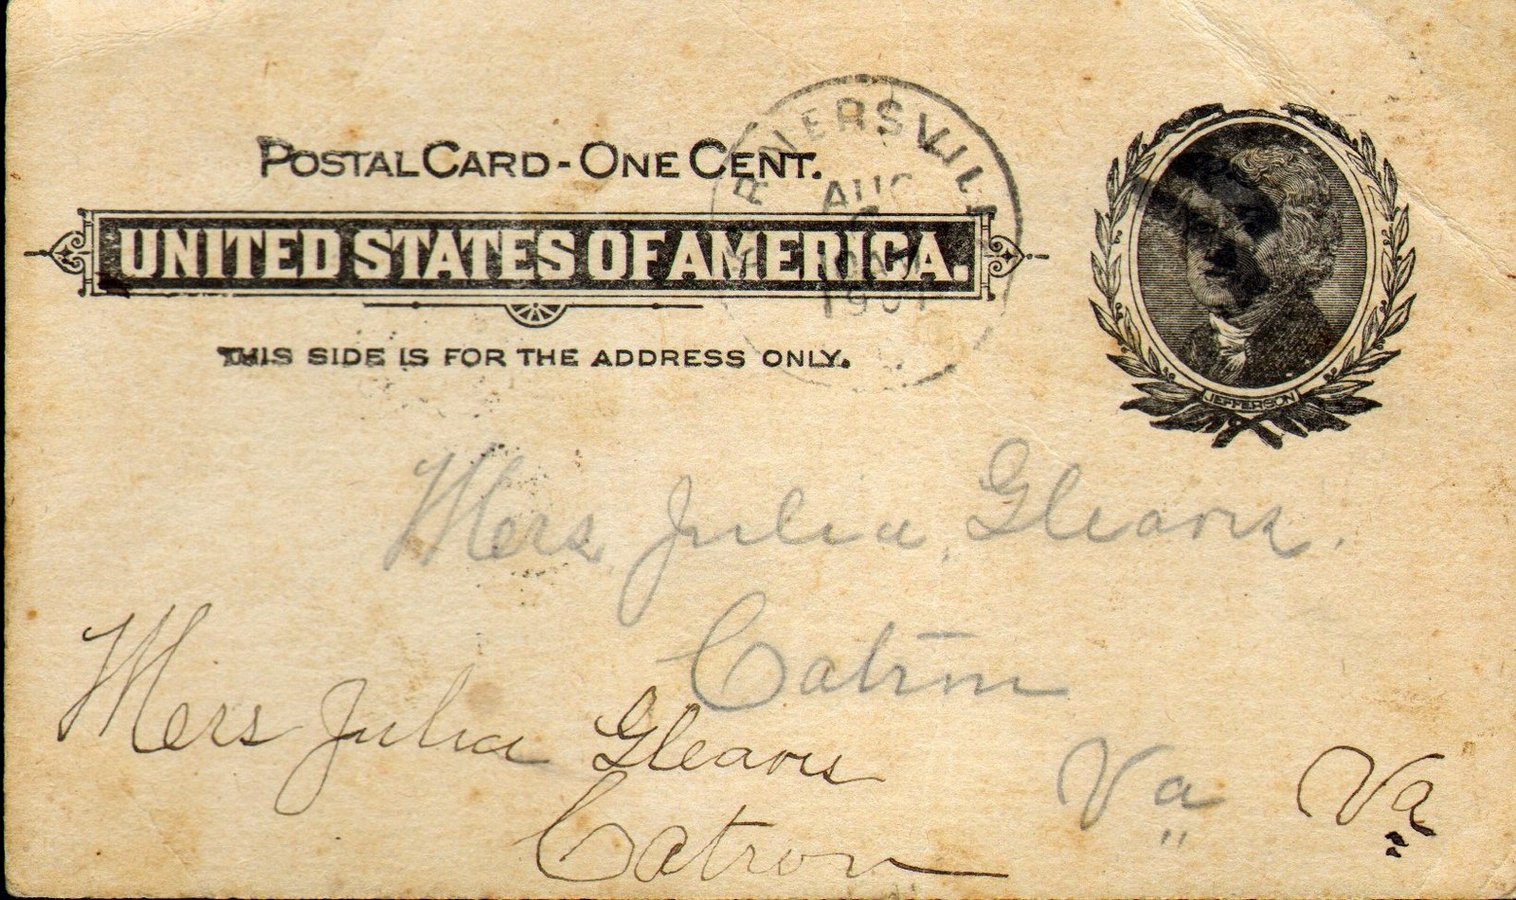 POSTAL CARD - ONE CENT.
UNITED STATES OF AMERICA.
THIS SIDE IS FOR THE ADDRESS ONLY.
AUG
1901
JEFFERSON
Mrs Julia Gleaves.
Catron
Va
Mrs Julia Gleaves
Catron
Va